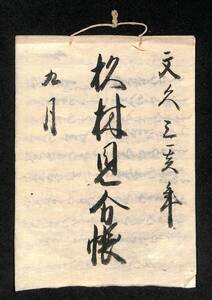 文久三亥年
杦村見分帳
九月